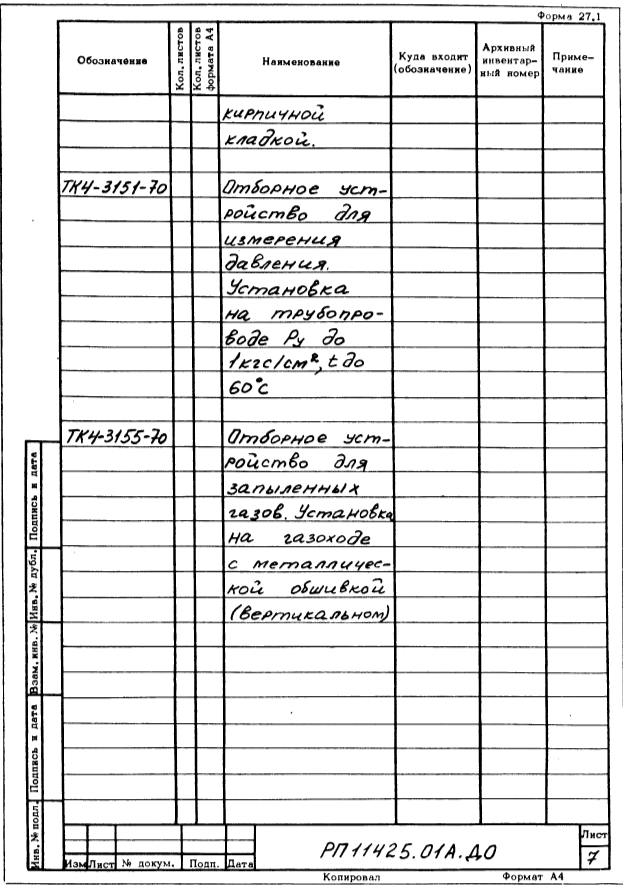 Форма 27.1
Обозначение
Кол. листов
Кол. листов
формата А4
Наименование
Куда входит
(обозначение)
Архивный
инвентар-
ный номер
Приме-
чание
кирпичной
кладкой.
ТК4-3151-70 Отборное уст-
ройство для
измерения
давления.
Установка
на трубопро-
воде Ру до
1кгс/см², t до
60°С
ТК4-3155-70 Отборное уст-
ройство для
запыленных
газов. Установка
на газоходе
с металличес-
кой обшивкой
(вертикальном)
Подпись и дата
Инв. № дубл.
Взам. инв. №
Подпись и дата
Инв. № подл.
Изм Лист № докум. Подп. Дата
РП11425.01А.ДО
Лист
7
Копировал Формат А4